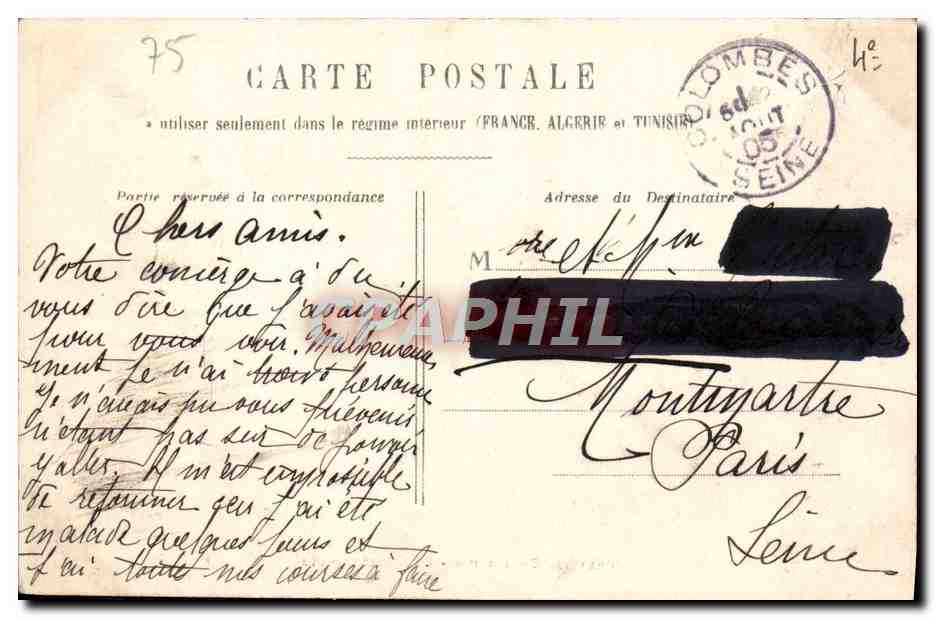 75
4e
CARTE POSTALE
à utiliser seulement dans le régime intérieur (FRANCE, ALGERIE et TUNISIE)
COLOMBES
AOUT
05
SEINE
Partie réservée à la correspondance
Adresse du Destinataire
Chers amis.
Votre concierge à du
vous dire que j'avais été
pour vous voir. Malheureuse
ment je n'ai trouvé personne
Je n'avais pu vous prévenir
n'étant pas sur de pouvoir
y aller. Il m'est impossible
de retourner car j'ai été
malade quelques jours et
j'ai toutes mes courses à faire
M et Mm
Montmartre
Paris
Seine
CPAPHIL